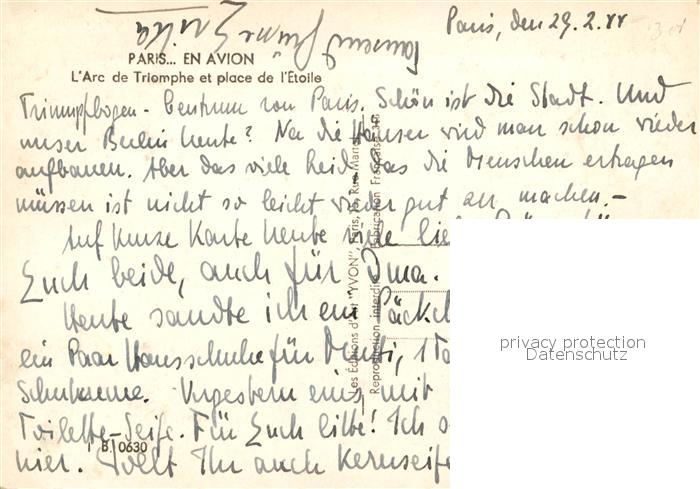 Tausend Grüsse Erika
Paris, den 29.2.44
PARIS... EN AVION
L'Arc de Triomphe et place de l'Étoile
Triumpfbogen - Centrum von Paris. Schön ist die Stadt. Und
unser Berlin heute? Na die Häuser wird man schon wieder
aufbauen. Aber das viele Leid, das die Menschen ertragen
müssen ist nicht so leicht wieder gut zu machen.-
Auf kurze Karte heute viele lie
Euch beide, auch für Oma.
Heute sandte ich ein Päckch
ein Paar Hausschuhe für Mutti, 1
Schuhcreme. Vorgestern eins mit
Toilette-Seife. Für Euch bitte! Ich
hier. Wollt Ihr auch Kernseife
I B. 0630
Les Éditions d'art "YVON", Paris, 15, Rue Martel
Reproduction interdite Fabrication Française
privacy protection
Datenschutz